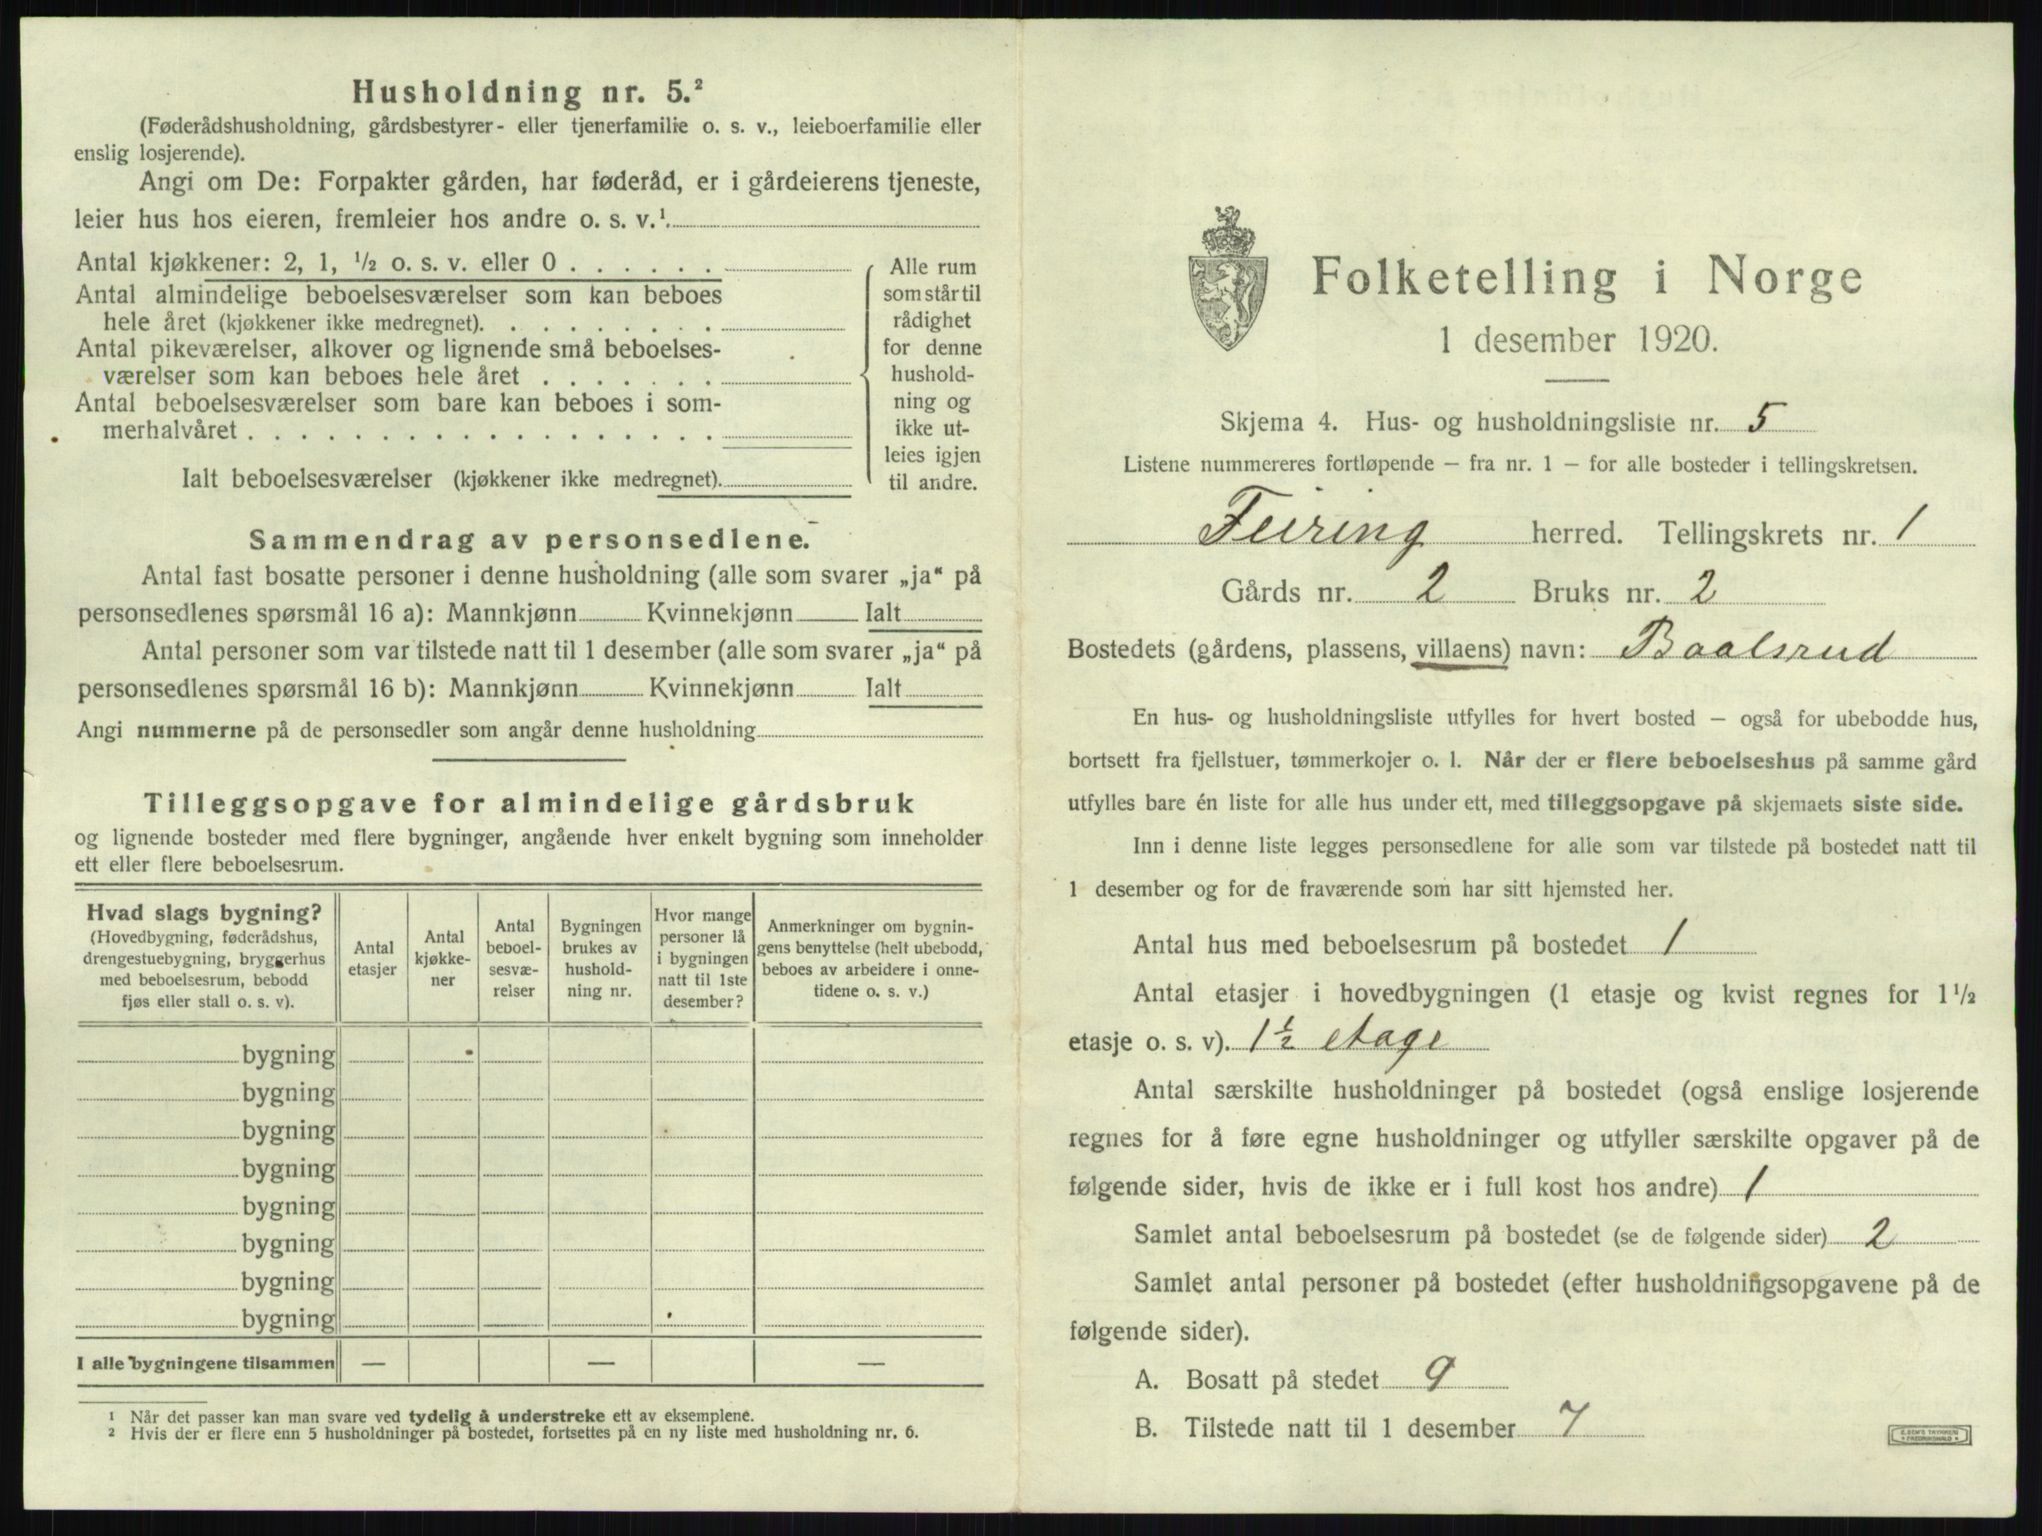 Husholdning nr. 5.²
(Føderådshusholdning, gårdsbestyrer- eller tjenerfamilie o. s. v., leieboerfamilie eller
enslig losjerende).
Angi om De: Forpakter gården, har føderåd, er i gårdeierens tjeneste,
leier hus hos eieren, fremleier hos andre o. s. v.¹.
Antal kjøkkener: 2, 1, ½ o. s. v. eller 0 . . . . . .
Antal almindelige beboelsesværelser som kan beboes
hele året (kjøkkener ikke medregnet). . . . . . . . .
Antal pikeværelser, alkover og lignende små beboelses-
værelser som kan beboes hele året . . . . . . .
Antal beboelsesværelser som bare kan beboes i som-
merhalvåret . . . . . . . . . . . . . . . . . .
Ialt beboelsesværelser (kjøkkener ikke medregnet).
Alle rum
som står til
rådighet
for denne
hushold-
ning og
ikke ut-
leies igjen
til andre.
Sammendrag av personsedlene.
Antal fast bosatte personer i denne husholdning (alle som svarer „ja“ på
personsedlenes spørsmål 16 a): Mannkjønn Kvinnekjønn Ialt
Antal personer som var tilstede natt til 1 desember (alle som svarer „ja“ på
personsedlenes spørsmål 16 b): Mannkjønn Kvinnekjønn Ialt
Angi nummerne på de personsedler som angår denne husholdning
Tilleggsopgave for almindelige gårdsbruk
og lignende bosteder med flere bygninger, angående hver enkelt bygning som inneholder
ett eller flere beboelsesrum.
Hvad slags bygning?
(Hovedbygning, føderådshus,
drengestuebygning, bryggerhus
med beboelsesrum, bebodd
fjøs eller stall o. s. v).
Antal
etasjer
Antal
kjøkke-
ner
Antal
beboel-
sesvæ-
relser
Bygningen
brukes av
hushold-
ning nr.
Hvor mange
personer lå
i bygningen
natt til 1ste
desember?
Anmerkninger om bygnin-
gens benyttelse (helt ubebodd,
beboes av arbeidere i onne-
tidene o. s. v.)
bygning
bygning
bygning
bygning
bygning
bygning
bygning
bygning
I alle bygningene tilsammen — — —
¹ Når det passer kan man svare ved tydelig å understreke ett av eksemplene.
² Hvis der er flere enn 5 husholdninger på bostedet, fortsettes på en ny liste med husholdning nr. 6.
Folketelling i Norge
1 desember 1920.
Skjema 4. Hus- og husholdningsliste nr. 5
Listene nummereres fortløpende – fra nr. 1 – for alle bosteder i tellingskretsen.
Feiring herred. Tellingskrets nr. 1
Gårds nr. 2 Bruks nr. 2
Bostedets (gårdens, plassens, villaens) navn: Baalsrud
En hus- og husholdningsliste utfylles for hvert bosted – også for ubebodde hus,
bortsett fra fjellstuer, tømmerkojer o. l. Når der er flere beboelseshus på samme gård
utfylles bare én liste for alle hus under ett, med tilleggsopgave på skjemaets siste side.
Inn i denne liste legges personsedlene for alle som var tilstede på bostedet natt til
1 desember og for de fraværende som har sitt hjemsted her.
Antal hus med beboelsesrum på bostedet 1
Antal etasjer i hovedbygningen (1 etasje og kvist regnes for 1½
etasje o. s. v). 1½ etage
Antal særskilte husholdninger på bostedet (også enslige losjerende
regnes for å føre egne husholdninger og utfyller særskilte opgaver på de
følgende sider, hvis de ikke er i full kost hos andre) 1
Samlet antal beboelsesrum på bostedet (se de følgende sider) 2
Samlet antal personer på bostedet (efter husholdningsopgavene på de
følgende sider).
A. Bosatt på stedet 9
B. Tilstede natt til 1 desember 7